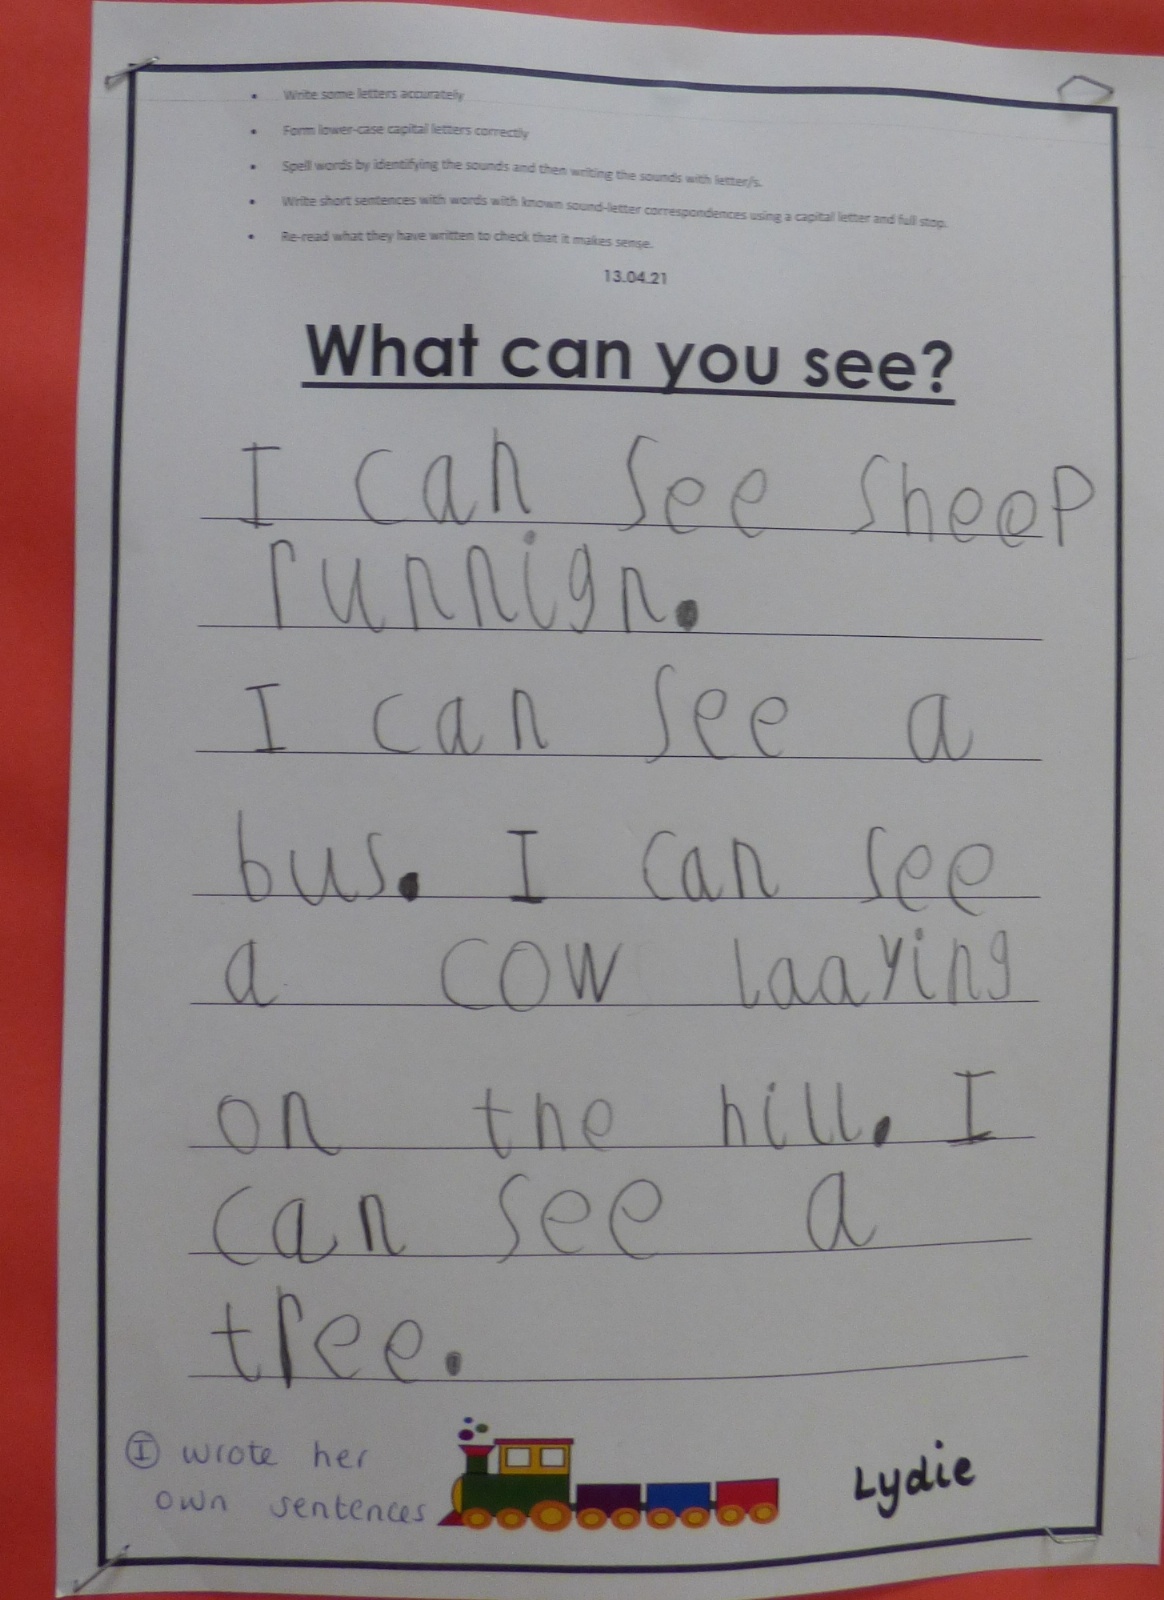 • Write some letters accurately
• Form lower-case capital letters correctly
• Spell words by identifying the sounds and then writing the sounds with letter/s.
• Write short sentences with words with known sound-letter correspondences using a capital letter and full stop.
• Re-read what they have written to check that it makes sense.
13.04.21
What can you see?
I can see sheep
runnign.
I can see a
bus. I can see
a cow laaying
on the hill. I
can see a
tree.
I wrote her
own sentences
Lydie